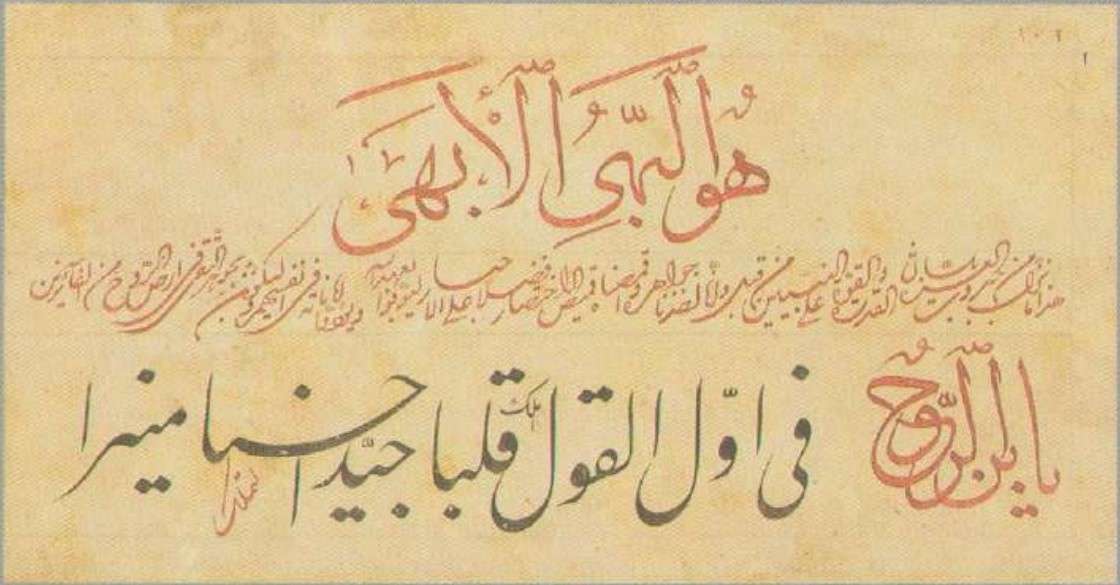 هُوَ البَهِيُّ الْأَبْهَى
هذا ما نزل من جبروت العزة بلسان القدرة والقوة على النبيين من قبل وانا اخذنا جواهره واقمصناه قميص الاختصار فضلا على الاحبار ليوفوا بعهد الله ويؤدوا اماناته في انفسهم وليكونن بجوهر التقى في ارض الروح من الفائزين
يا بن الرُّوح في اوّل القول املك قلبا جيّدا حسنا منيرا